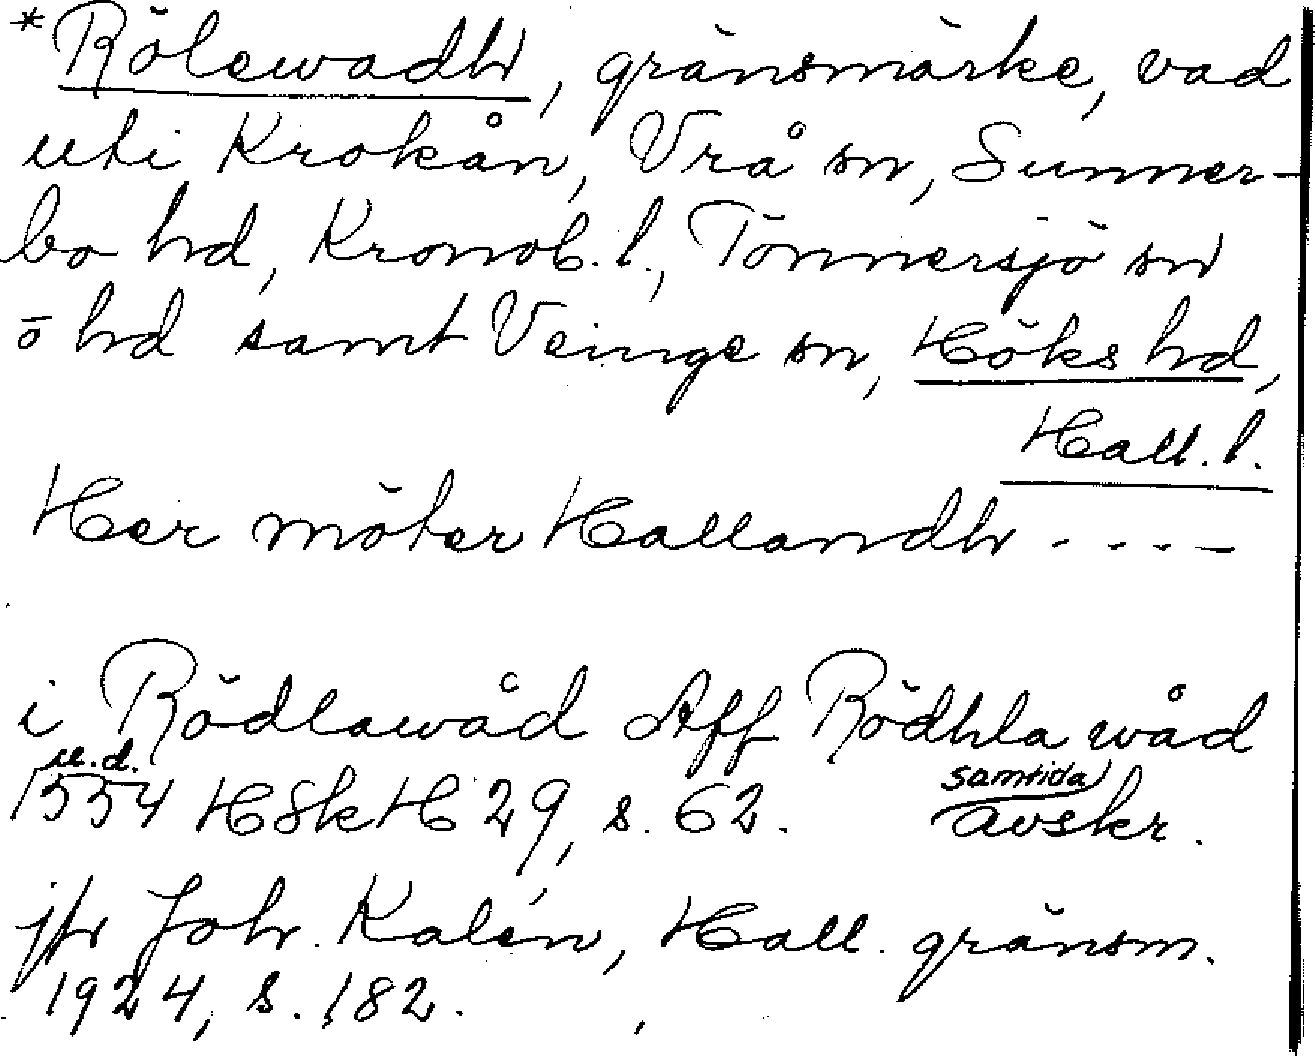 *Rölewadh, gränsmärke, vad
uti Krokån, Vrå sn, Sunner-
bo hd, Kronob. l., Tönnersjö sn
ō hd samt Veinge sn, Höks hd,
Hall. l.
Her möter Hallandh - - - -
i Rödlawåd Aff Rödhla wåd
u.d.
1554 HSkH 29, s. 62. samtida avskr.
jfr Joh. Kalén, Hall. gränsm.
1924, s. 182.